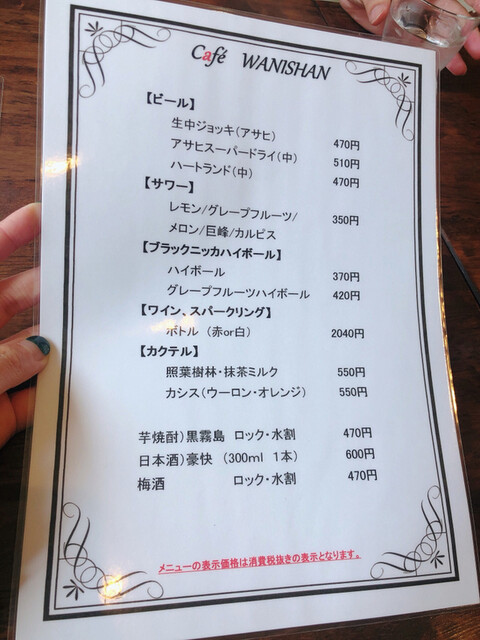 Café WANISHAN
【ビール】
生中ジョッキ(アサヒ) 470円
アサヒスーパードライ(中) 510円
ハートランド(中) 470円
【サワー】
レモン/グレープフルーツ/ 350円
メロン/巨峰/カルピス
【ブラックニッカハイボール】
ハイボール 370円
グレープフルーツハイボール 420円
【ワイン、スパークリング】
ボトル (赤or白) 2040円
【カクテル】
照葉樹林・抹茶ミルク 550円
カシス(ウーロン・オレンジ) 550円
芋焼酎)黒霧島 ロック・水割 470円
日本酒)豪快 (300ml 1本) 600円
梅酒 ロック・水割 470円
メニューの表示価格は消費税抜きの表示となります。